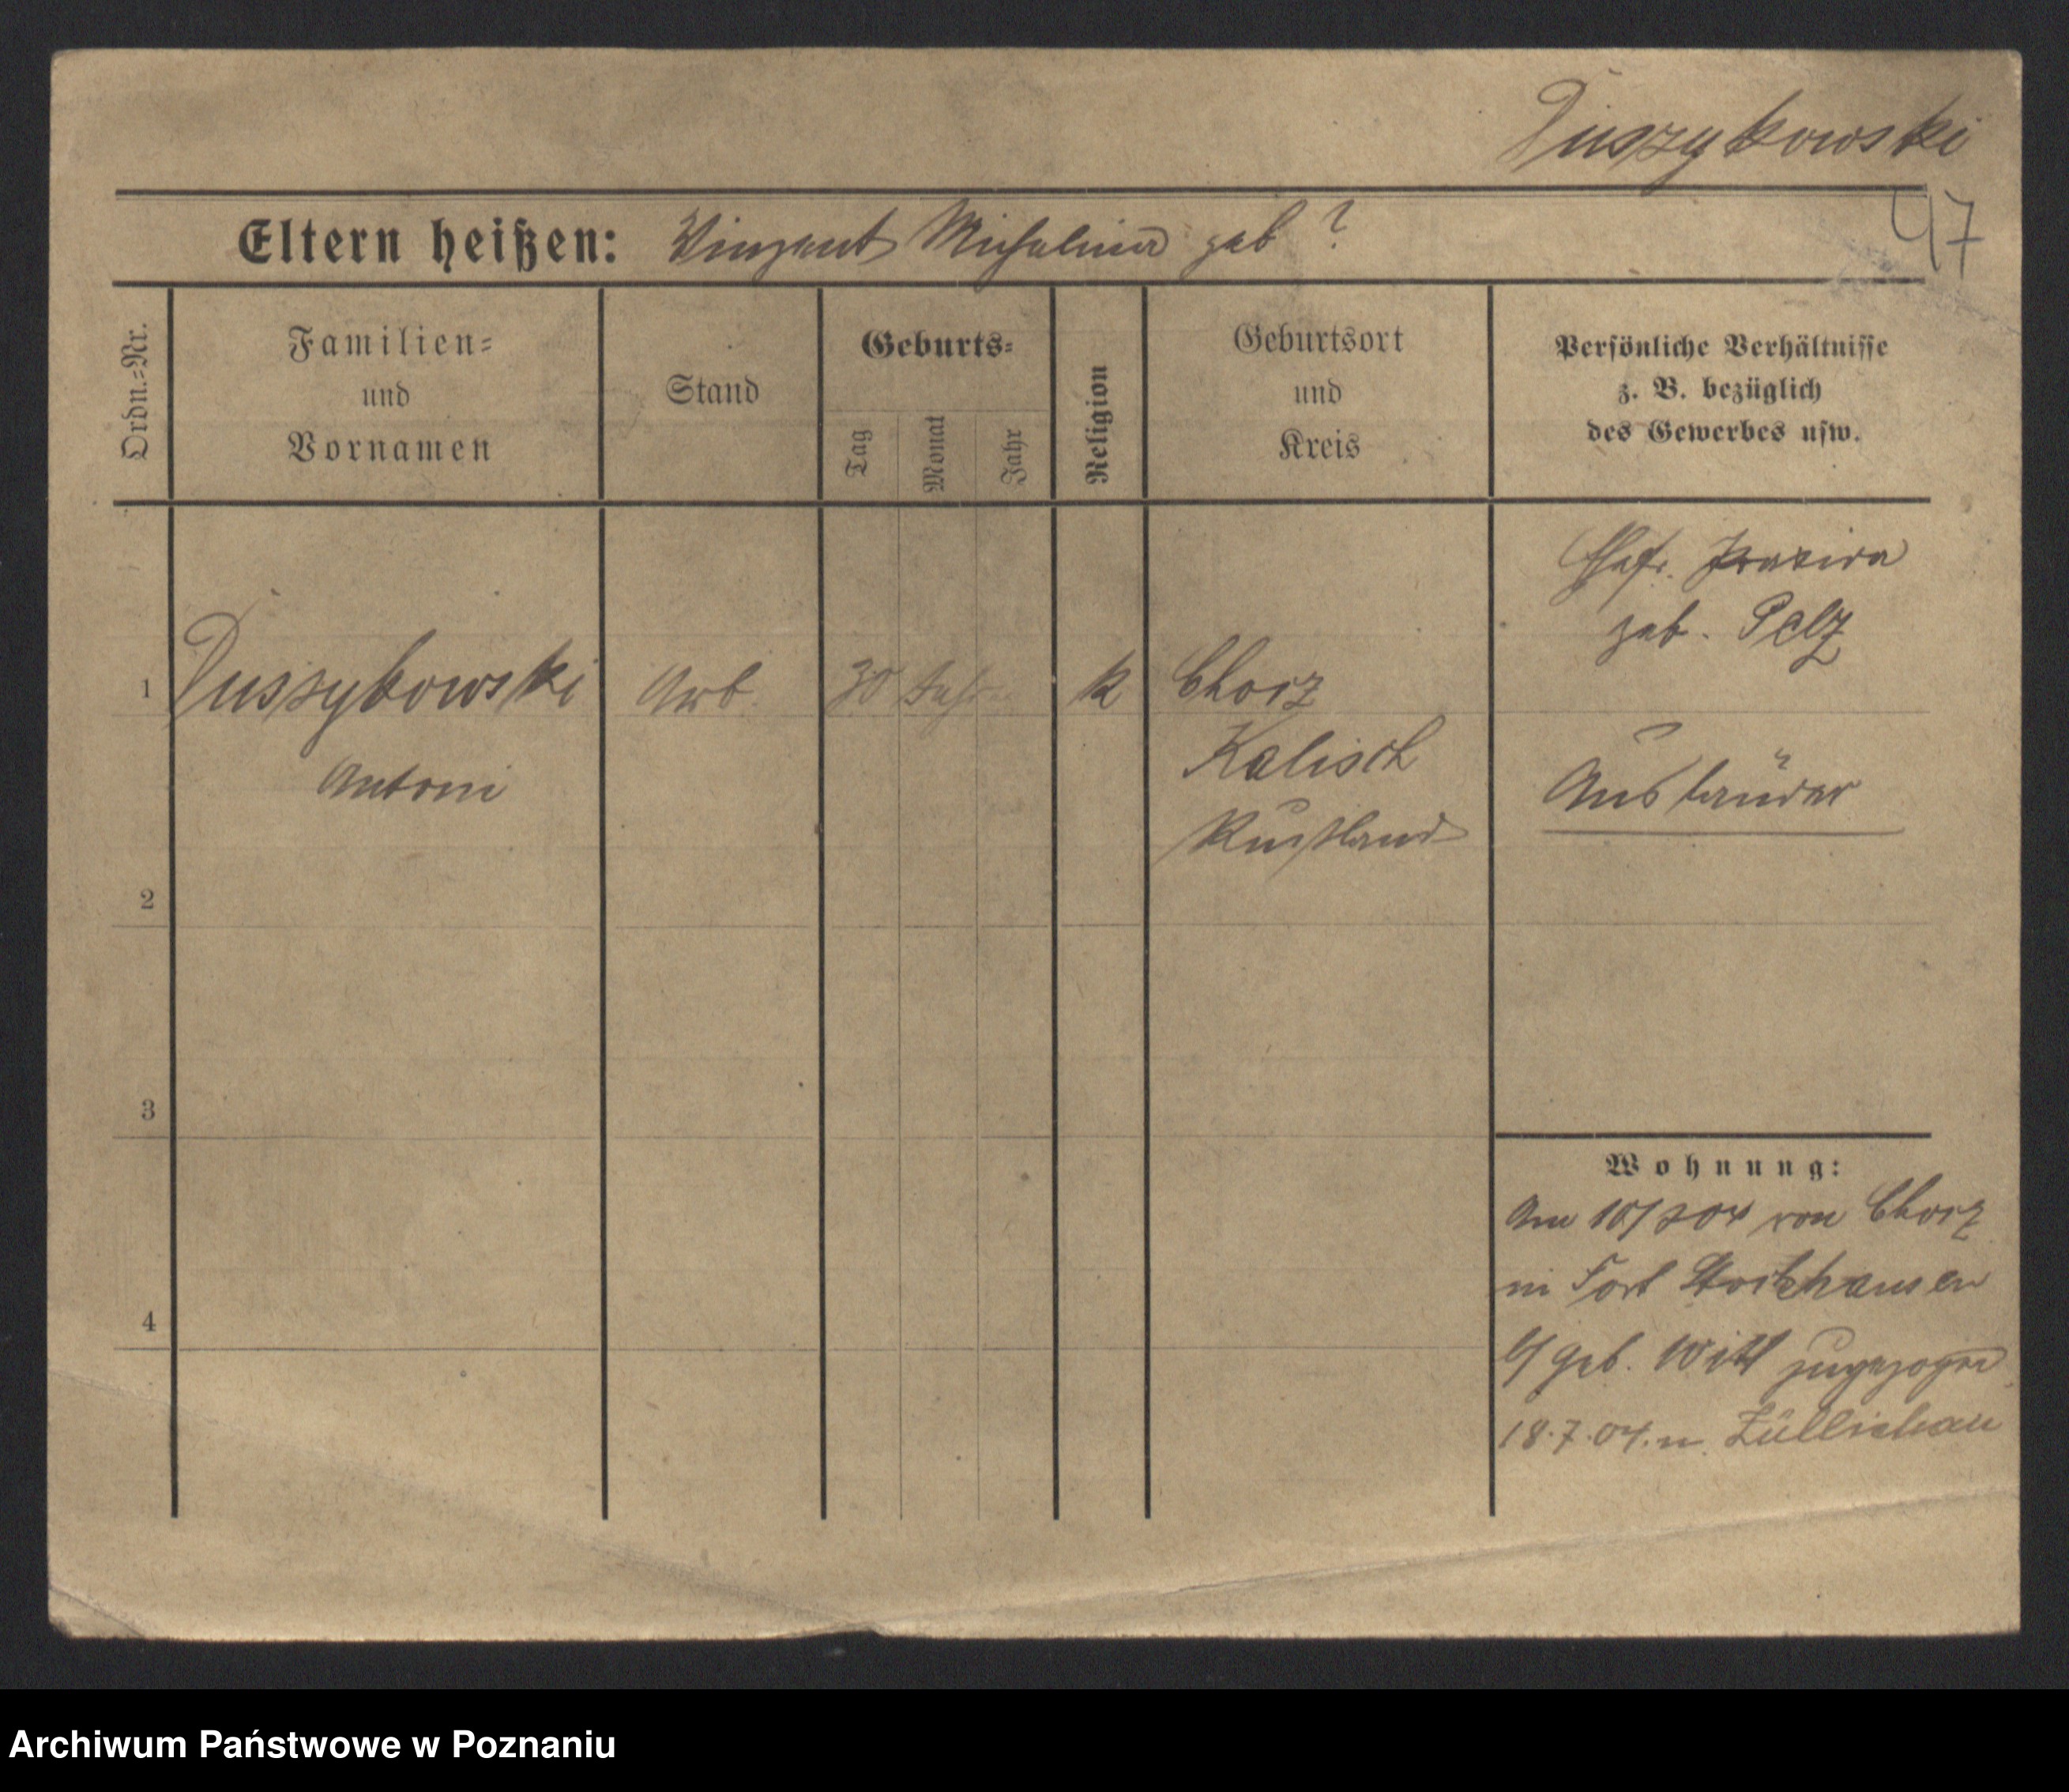 Duszykowski
47
Eltern heißen: Vinzent Michalina geb ?
Ordn.=Nr.
Familien=
und
Vornamen
Stand
Geburts=
Tag
Monat
Jahr
Religion
Geburtsort
und
Kreis
Persönliche Verhältnisse
z. B. bezüglich
des Gewerbes usw.
Ehefr.
geb. Pelz
1
Duszykowski
Arb.
30 Jahre
k
Chorz
Antoni
Kalisch
Rußland
Ausländer
2
3
4
Wohnung:
Am von Chorz
in Fort
geb. Witt zugezogen
18.7.04. n. Züllichau
Archiwum Państwowe w Poznaniu